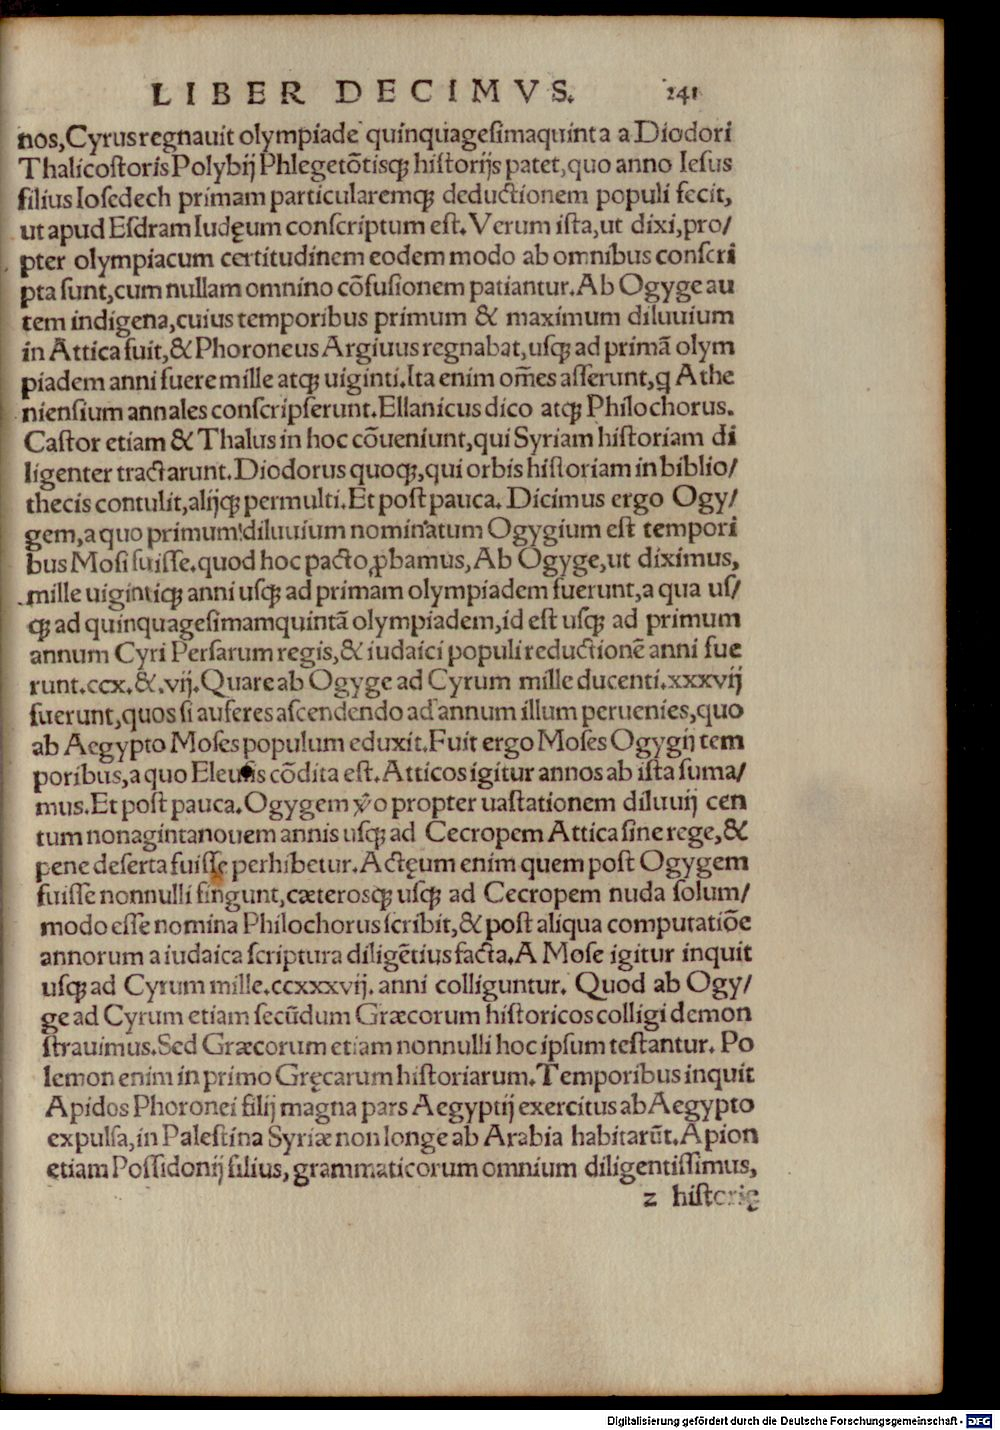 LIBER DECIMVS. 241
nos, Cyrus regnauit olympiade quinquagesimaquinta a Diodori
Thalicostoris Polybij Phlegetōtisq; historijs patet, quo anno Iesus
filius Iosedech primam particularemq; deductionem populi fecit,
ut apud Esdram Iudęum conscriptum est. Verum ista, ut dixi, pro/
pter olympiacum certitudinem eodem modo ab omnibus conscri
pta sunt, cum nullam omnino cōfusionem patiantur. Ab Ogyge au
tem indigena, cuius temporibus primum & maximum diluuium
in Attica fuit, & Phoroneus Argiuus regnabat, usq; ad primā olym
piadem anni fuere mille atq; uiginti. Ita enim om̄es asserunt, q Athe
niensium annales conscripserunt. Ellanicus dico atq; Philochorus.
Castor etiam & Thalus in hoc cōueniunt, qui Syriam historiam di
ligenter tractarunt. Diodorus quoq;, qui orbis historiam in biblio/
thecis contulit, alijq; permulti. Et post pauca. Dicimus ergo Ogy/
gem, a quo primum diluuium nominatum Ogygium est tempori
bus Mosi fuisse. quod hoc pacto ꝓbamus, Ab Ogyge, ut diximus,
mille uigintiq; anni usq; ad primam olympiadem fuerunt, a qua us/
q; ad quinquagesimamquintā olympiadem, id est usq; ad primum
annum Cyri Persarum regis, & iudaici populi reductionē anni fue
runt. ccx. &. vij. Quare ab Ogyge ad Cyrum mille ducenti. xxxvij
fuerunt, quos si auferes ascendendo ad annum illum peruenies, quo
ab Aegypto Moses populum eduxit. Fuit ergo Moses Ogygij tem
poribus, a quo Eleusis cōdita est. Atticos igitur annos ab ista suma/
mus. Et post pauca. Ogygem ꝟo propter uastationem diluuij cen
tum nonagintanouem annis usq; ad Cecropem Attica sine rege, &
pene deserta fuisse perhibetur. Actęum enim quem post Ogygem
fuisse nonnulli fingunt, cæterosq; usq; ad Cecropem nuda solum/
modo esse nomina Philochorus scribit, & post aliqua computatiōe
annorum a iudaica scriptura diligētius facta. A Mose igitur inquit
usq; ad Cyrum mille. ccxxxvij. anni colliguntur. Quod ab Ogy/
ge ad Cyrum etiam secūdum Græcorum historicos colligi demon
strauimus. Sed Græcorum etiam nonnulli hoc ipsum testantur. Po
lemon enim in primo Gręcarum historiarum. Temporibus inquit
Apidos Phoronei filij magna pars Aegyptij exercitus ab Aegypto
expulsa, in Palestina Syriæ non longe ab Arabia habitarūt. Apion
etiam Possidonij filius, grammaticorum omnium diligentissimus,
z historię
Digitalisierung gefördert durch die Deutsche Forschungsgemeinschaft - DFG